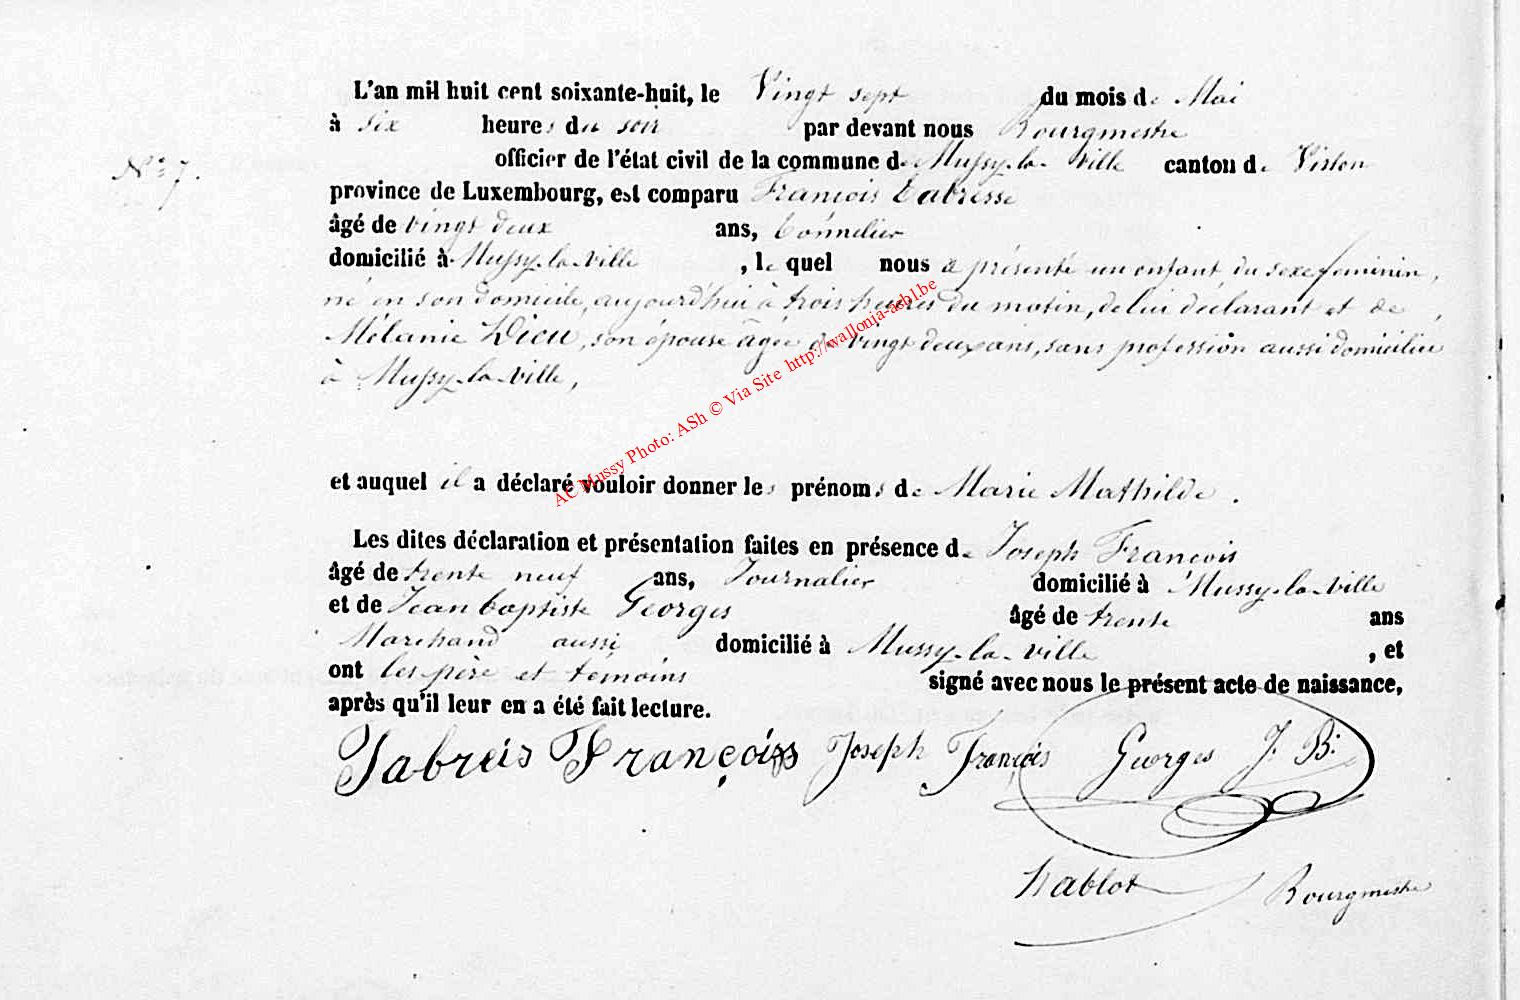 L'an mil huit cent soixante-huit, le Vingt sept du mois de Mai
à six heures du soir par devant nous Bourgmestre
officier de l'état civil de la commune de Mussy-la-Ville canton de Virton
N° 7.
province de Luxembourg, est comparu François
âgé de vingt deux ans, Tonnelier
domicilié à Mussy-la-Ville, le quel nous a présenté un enfant du sexe feminin,
né en son domicile, aujourd'hui à trois heures du matin, de lui déclarant et de
Mélanie Dieu, son épouse âgée de vingt deux ans, sans profession aussi domiciliée
à Mussy-la-ville,
AC Mussy Photo: ASh © Via Site http://wallonia-asbl.be
et auquel il a déclaré vouloir donner les prénoms de Marie Mathilde.
Les dites déclaration et présentation faites en présence de Joseph François
âgé de trente neuf ans, Journalier domicilié à Mussy-la-Ville
et de Jean baptiste Georges âgé de trente ans
Marchand aussi domicilié à Mussy-la-ville, et
ont les père et témoins signé avec nous le présent acte de naissance,
après qu'il leur en a été fait lecture.
François Joseph François Georges J. B.
Bourgmestre